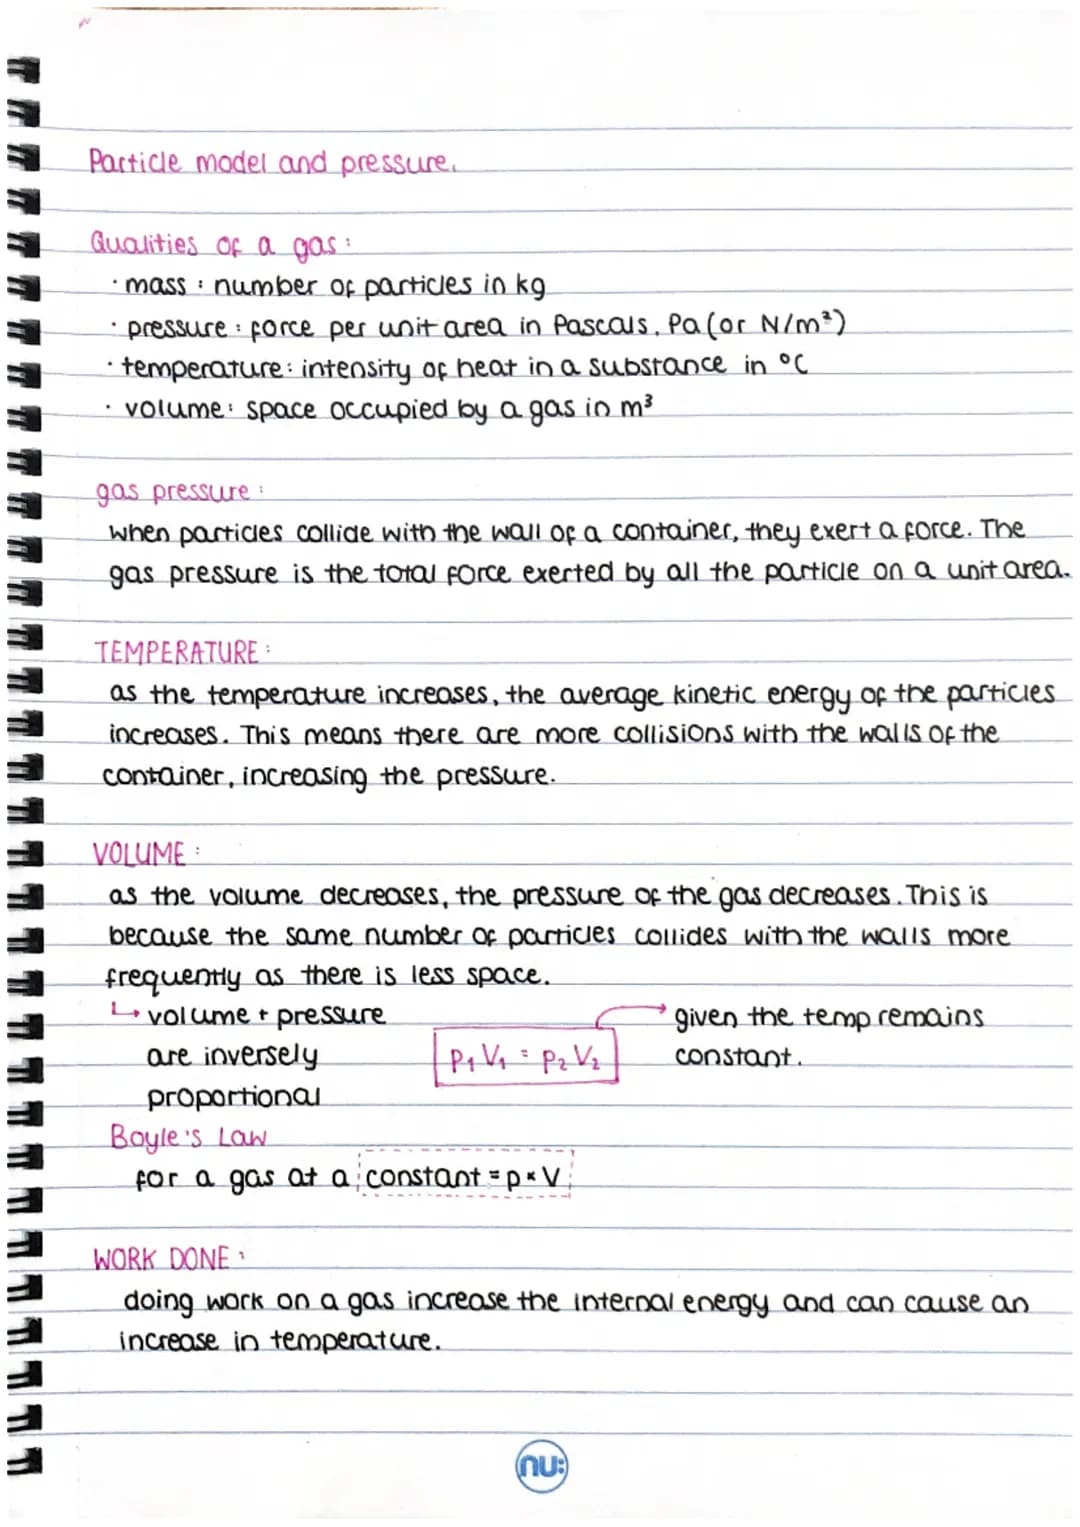 Particle model and pressure.
Qualities of a gas:
· mass: number of particles in kg
· pressure: force per unit area in Pascals, Pa (or N/m²)
· temperature: intensity of heat in a substance in °C
· volume: space occupied by a gas in m³
gas pressure:
when particles collide with the wall of a container, they exert a force. The
gas pressure is the total force exerted by all the particle on a unit area.
TEMPERATURE:
as the temperature increases, the average kinetic energy of the particles
increases. This means there are more collisions with the walls of the
container, increasing the pressure.
VOLUME:
as the volume decreases, the pressure of the gas decreases. This is
because the same number of particles collides with the walls more
frequently as there is less space.
↳ volume + pressure
are inversely
proportional
P₁ V₁ = P₂ V₂
given the temp remains
constant.
Boyle's Law
for a gas at a constant = p × V
WORK DONE:
doing work on a gas increase the internal energy and can cause an
increase in temperature.
nu: